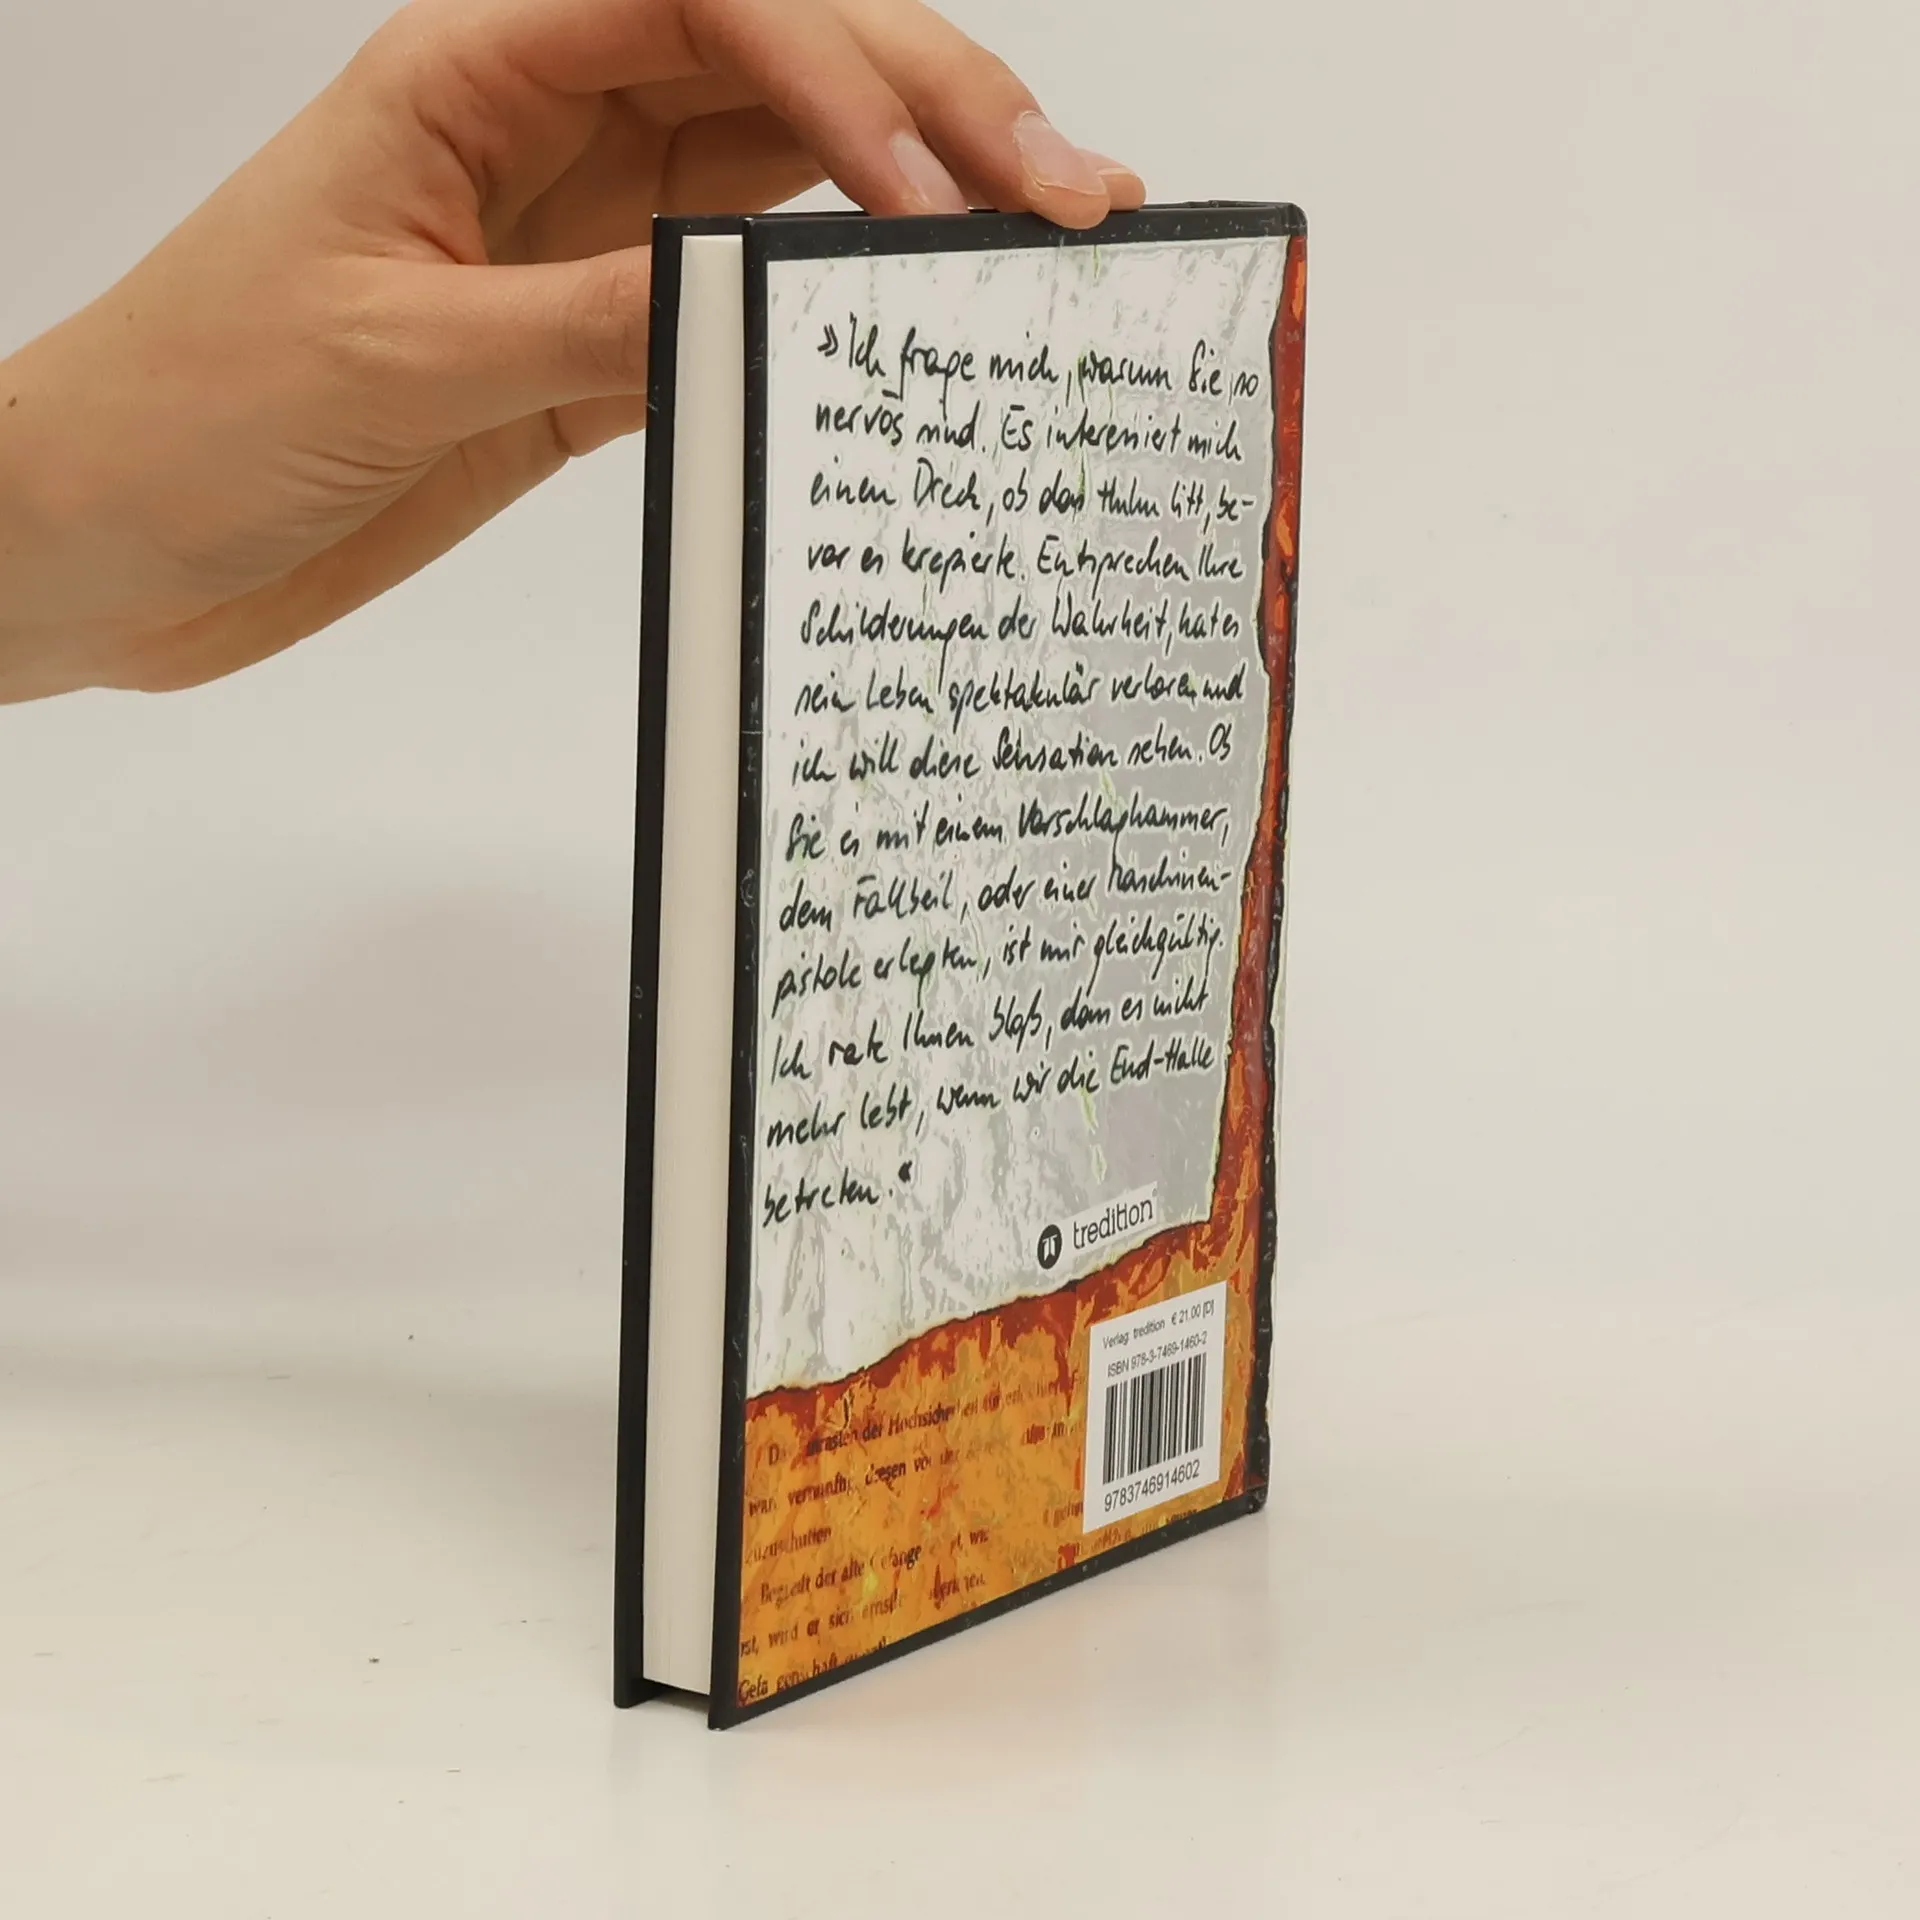 »Ich frage mich, warum Sie so
nervös sind. Es interessiert mich
einen Dreck, ob das Huhn litt, be-
vor es krepierte. Entsprechen Ihre
Schilderungen der Wahrheit, hat es
sein Leben spektakulär verloren und
ich will diese Sensation sehen. Ob
Sie es mit einem Vorschlaghammer,
dem Fallbeil, oder einer Maschinen-
pistole erlegten, ist mir gleichgültig.
Ich rate Ihnen bloß, dass es nicht
mehr lebt, wenn wir die End-Halle
betreten.«
tredition
Verlag: tredition € 21.00 [D]
ISBN 978-3-7469-1460-2
9783746914602
der Hochsicherheit
war vernünftig, diesen vor der
zuzuschütten
der alte Gefange wie
ist, wird er sich